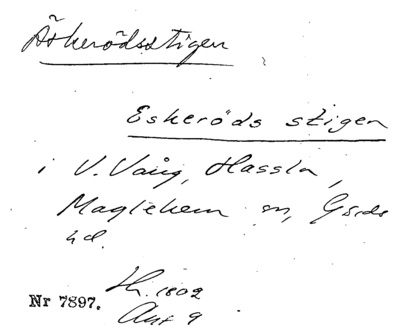 Äskerödsstigen
Eskeröds stigen
i V. Vång, Hassla,
Maglehem sn, Gärds
hd.
Nr 7897. Lh. 1802
Akt 9